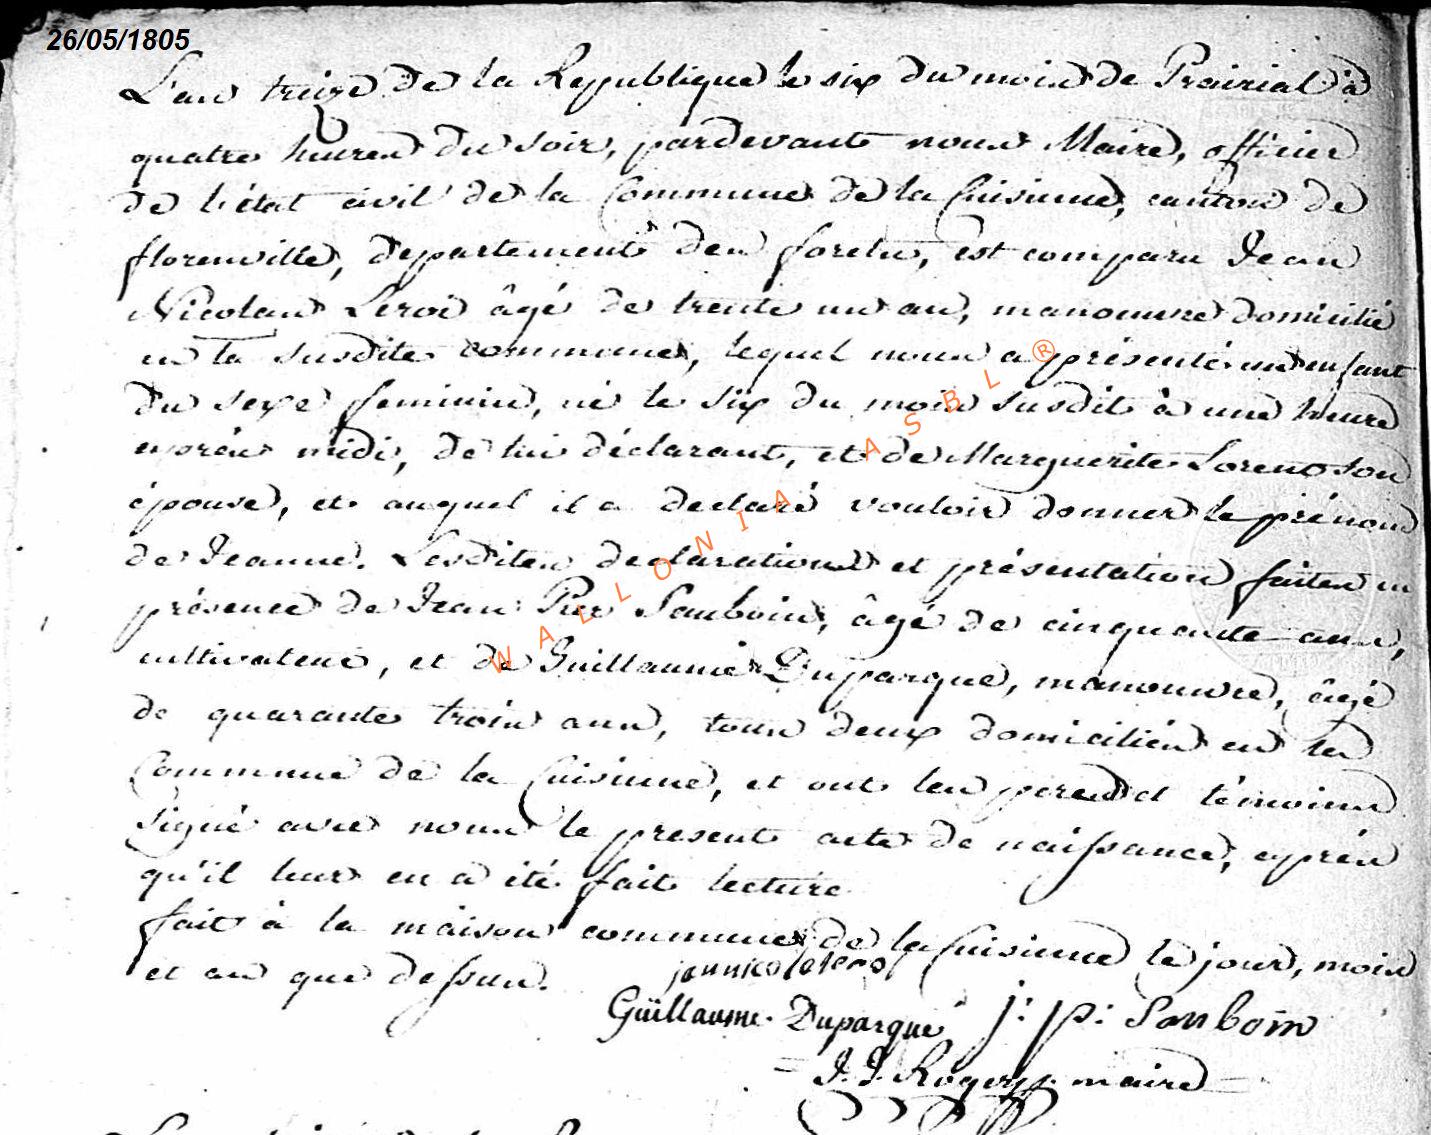 26/05/1805
L'an treize de la Republique le six du mois de Prairial à
quatre heures du soir, pardevant nous Maire, officier
de l'état civil de la Commune de la Cuisinne, canton de
florenville, departement des forets, est comparu Jean
Nicolas Leroi âgé de trente un an, manouvre domicilié
en la susdite commune, lequel nous a présenté un enfant
du sexe feminin, né le six du mois susdit à une heure
après midi, de lui déclarant, et de Marguerite Lorent son
épouse, et auquel il a declaré vouloir donner le prénom
de Jeanne. Lesdites declaration et présentation faites en
présence de Jean Pre Sauboin, âgé de cinquante ans,
cultivateur, et de Guillaume Duparque, manouvre, âgé
de quarante trois ans, tous deux domiciliés en la
Commune de la Cuisinne, et ont les peres et témoins
signé avec nous le present acte de naissance, après
qu'il leur en a été fait lecture
fait à la maison commune de la Cuisinne le jour, mois
et an que dessus.
jan nicola lero
Güillaume Duparque j: p: Sauboin
J. J. Roger maire
WALLONIA ASBL ®